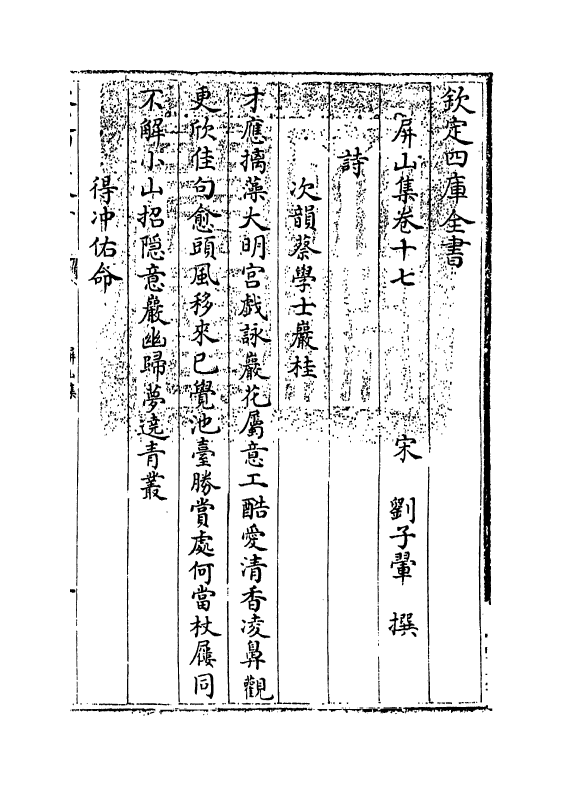 欽定四庫全書
屏山集卷十七
宋 劉子翬 撰
詩
次韻蔡學士巖桂
才應摛藻大明宮戲詠巖花屬意工酷愛清香凌鼻觀
更欣佳句愈頭風移來已覺池臺勝賞處何當杖屨同
不解小山招隱意巖幽歸夢遶青叢
得冲佑命
屏山集